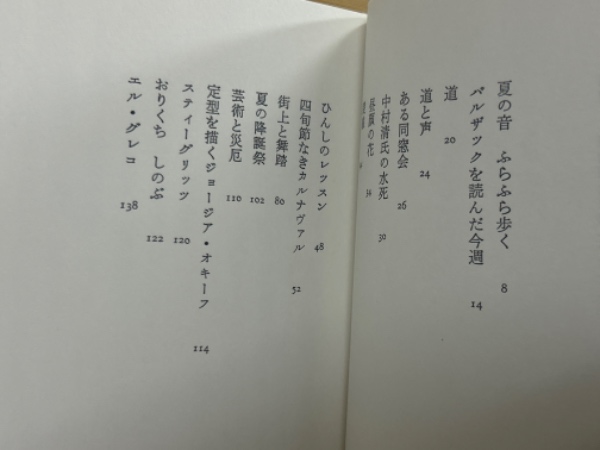 夏の音 ふらふら歩く 8
バルザックを読んだ今週 14
道 20
道と声 24
ある同窓会 26
中村清氏の水死 30
昼顔の花 34
ひんしのレッスン 48
四旬節なきカルナヴァル 52
街上と舞踏 80
夏の降誕祭 102
芸術と災厄 110
定型を描くジョージア・オキーフ 114
スティーグリッツ 120
おりくち しのぶ 122
エル・グレコ 138